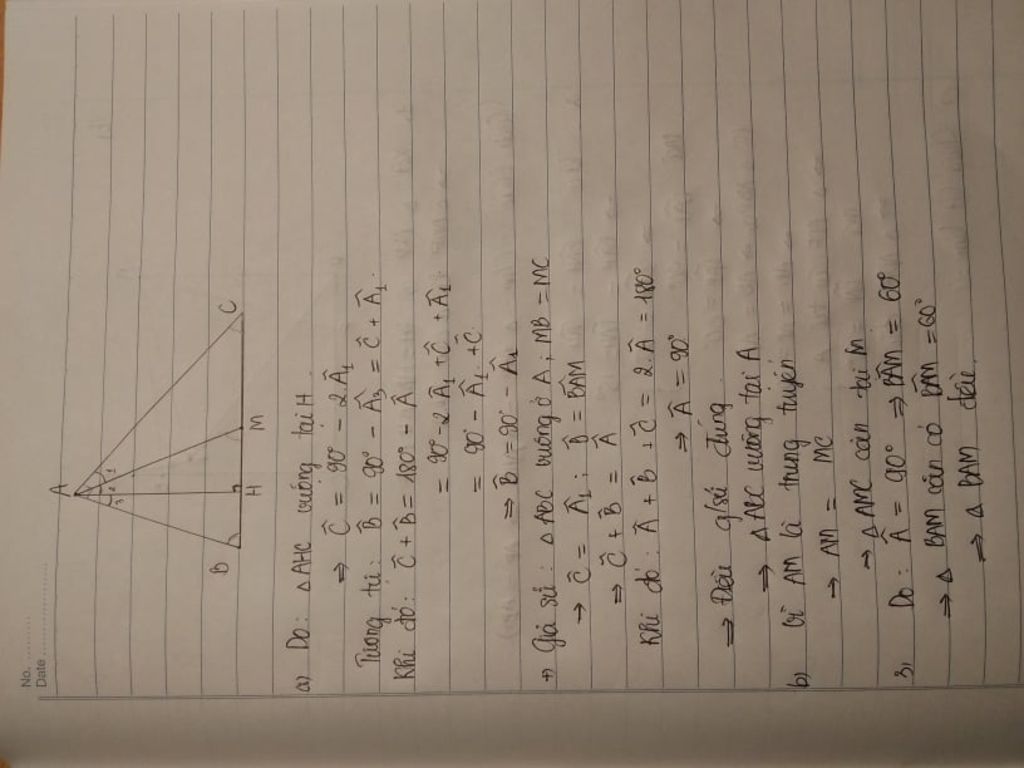 No. ............
Date ............
A
3 2 1
B H M C
a) Do: △AHC vuông tại H
⇒ Ĉ = 90° - 2Â₁
Tương tự: B̂ = 90° - Â₃ = Ĉ + Â₁.
Khi đó: Ĉ + B̂ = 180° - Â
= 90° - 2Â₁ + Ĉ + Â₁.
= 90° - Â₁ + Ĉ
⇒ B̂ = 90° - Â₁
+) Giả sử: △ABC vuông ở A; MB = MC
→ Ĉ = Â₁; B̂ = BÂM
⇒ Ĉ + B̂ = Â
Khi đó: Â + B̂ + Ĉ = 2Â = 180°
⇒ Â = 90°
⇒ Điều g/sử đúng
⇒ △ABC vuông tại A
b) Vì AM là trung tuyến
→ AM = MC
→ △AMC cân tại M
3, Do: Â = 90° ⇒ BÂM = 60°
⇒ △ BAM cân có BÂM = 60°
⇒ △ BAM đều.